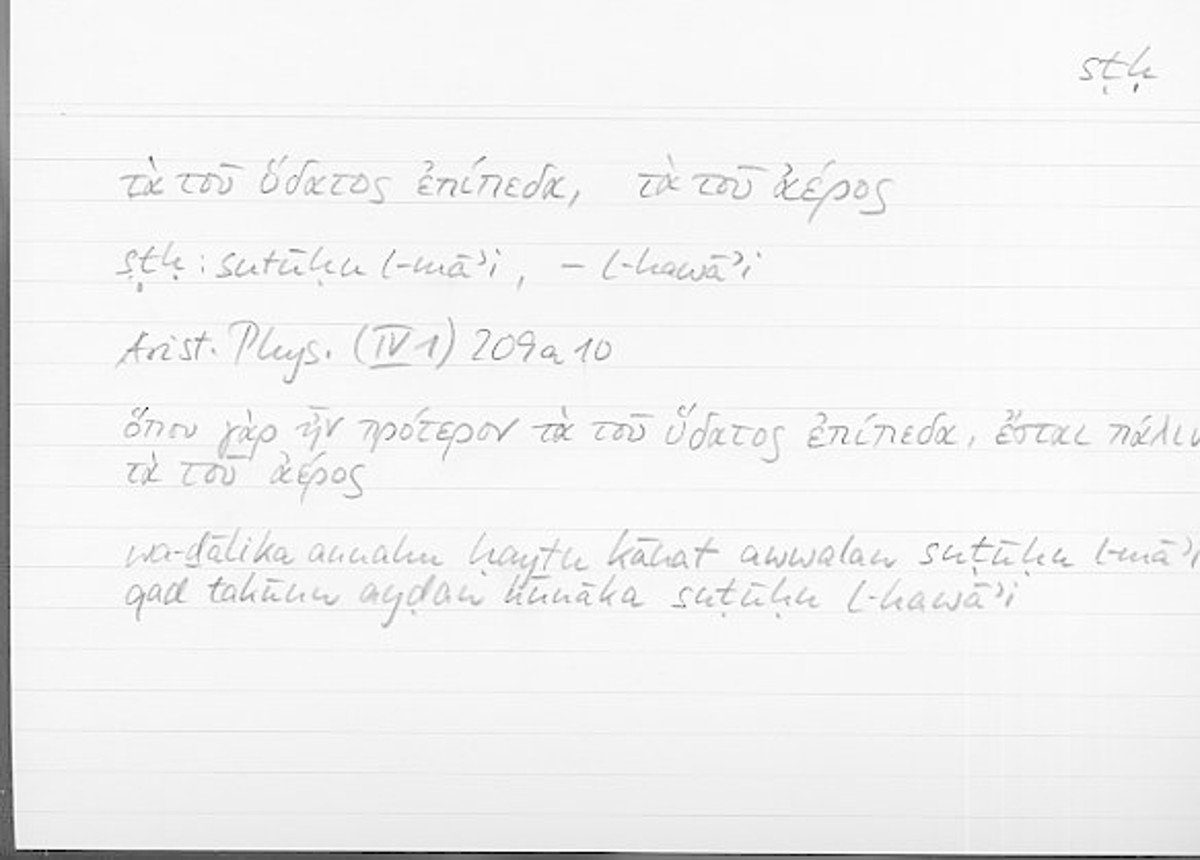 sṭḥ
τὰ τοῦ ὕδατος ἐπίπεδα, τὰ τοῦ ἀέρος
sṭḥ : sutūḥu l-māʾi, – l-hawāʾi
Arist. Phys. (IV 1) 209a10
ὅπου γὰρ ἦν πρότερον τὰ τοῦ ὕδατος ἐπίπεδα, ἔσται πάλιν
τὰ τοῦ ἀέρος
wa-ḏālika annahu ḥayṯu kānat awwalan suṭūḥu l-māʾi
qad takūnu ayḍan hunāka suṭūḥu l-hawāʾi